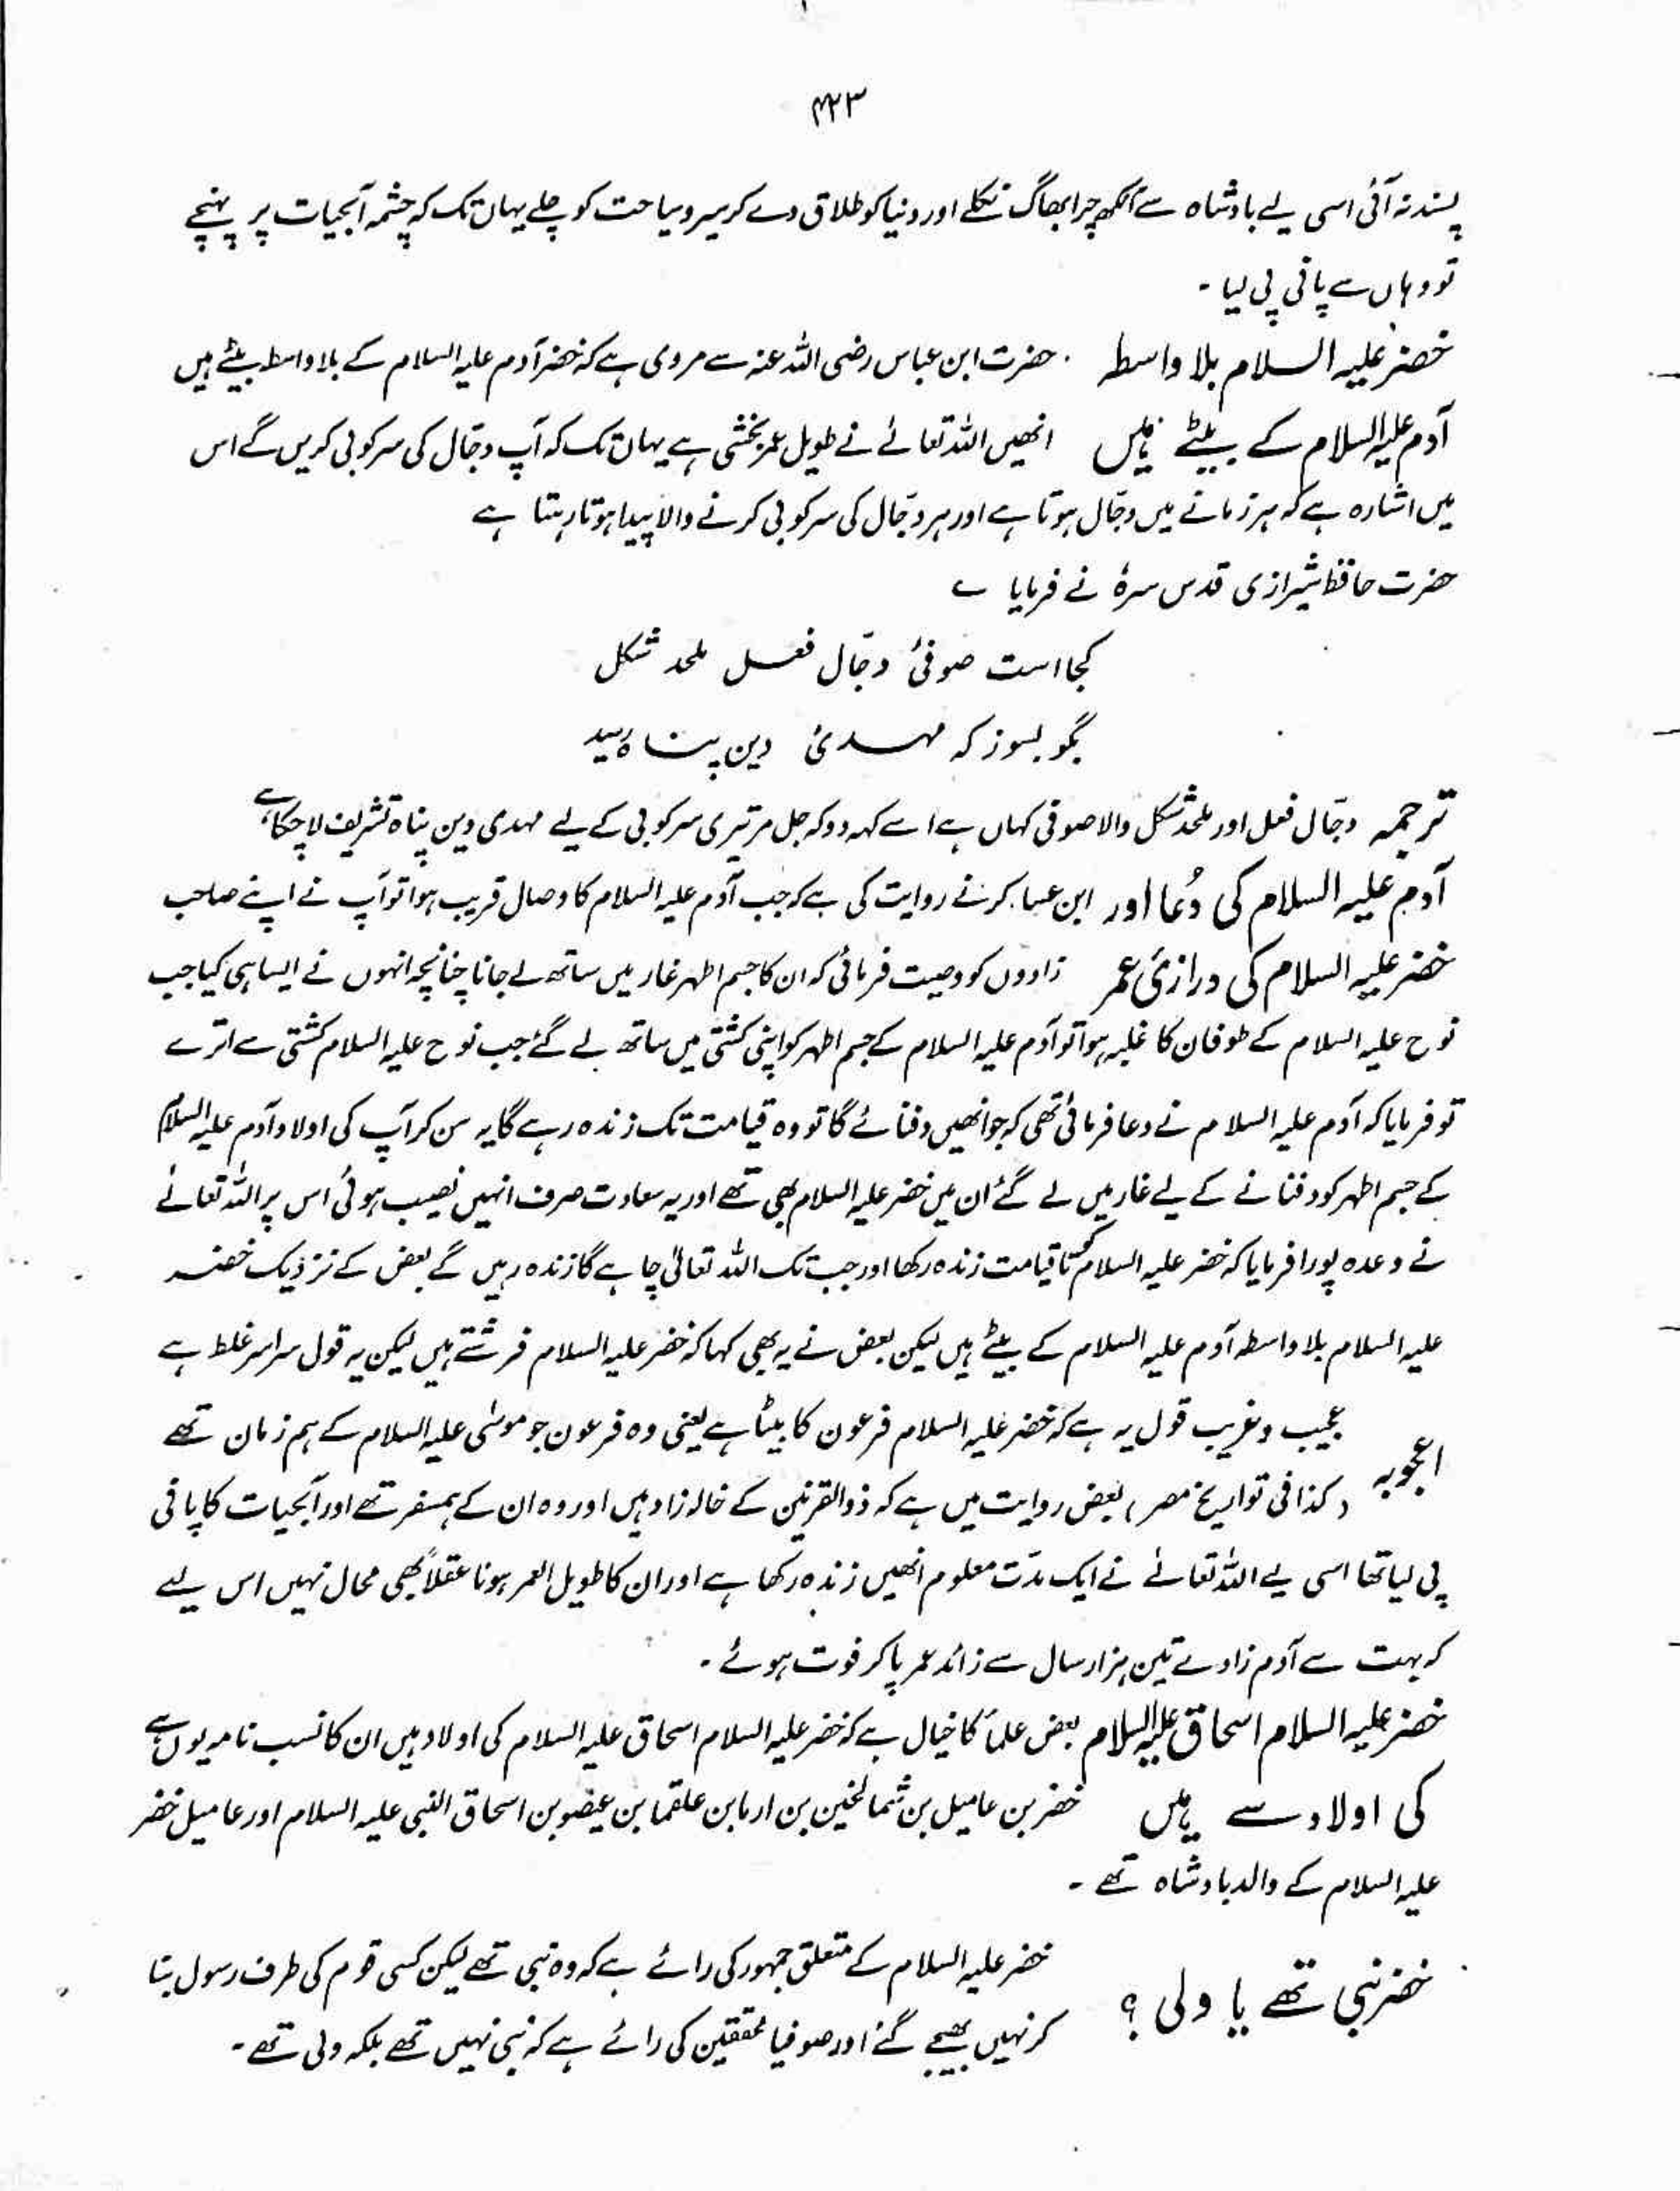 ۴۲۳
پسند نہ آئی اسی لیے بادشاہ سے آنکھ چرا بھاگ نکلے اور دنیا کو طلاق دے کر سیر و سیاحت کو چلے یہاں تک کہ چشمہ آبحیات پر پہنچے
تو وہاں سے پانی پی لیا ۔
خضر علیہ السلام بلا واسطہ ۔ حضرت ابن عباس رضی اللہ عنہ سے مروی ہے کہ خضر آدم علیہ السلام کے بلا واسطہ بیٹے ہیں
آدم علیہ السلام کے بیٹے ہیں انھیں اللہ تعالےٰ نے طویل عمر بخشی ہے یہاں تک کہ آپ دجّال کی سرکوبی کریں گے اس
میں اشارہ ہے کہ ہر زمانے میں دجّال ہوتا ہے اور ہر دجّال کی سرکوبی کرنے والا پیدا ہوتا رہتا ہے
حضرت حافظ شیرازی قدس سرہٗ نے فرمایا ے
کجا است صوفیٔ دجّال فعل ملحد شکل
بگو بسوز کہ مہدیٔ دین پناہ رسید
ترجمہ دجّال فعل اور ملحد شکل والا صوفی کہاں ہے اسے کہہ دو کہ جل مر تیری سرکوبی کے لیے مہدی دین پناہ تشریف لا چکا ہے
آدم علیہ السلام کی دُعا اور ابن عساکر نے روایت کی ہے کہ جب آدم علیہ السلام کا وصال قریب ہوا تو آپ نے اپنے صاحب
خضر علیہ السلام کی درازیٔ عمر زادوں کو وصیت فرمائی کہ ان کا جسم اطہر غار میں ساتھ لے جانا چنانچہ انہوں نے ایسا ہی کیا جب
نوح علیہ السلام کے طوفان کا غلبہ ہوا تو آدم علیہ السلام کے جسم اطہر کو اپنی کشتی میں ساتھ لے گئے جب نوح علیہ السلام کشتی سے اترے
تو فرمایا کہ آدم علیہ السلام نے دعا فرمائی تھی کہ جو انھیں دفنائے گا تو وہ قیامت تک زندہ رہے گا یہ سن کر آپ کی اولاد آدم علیہ السلام
کے جسم اطہر کو دفنانے کے لیے غار میں لے گئے ان میں خضر علیہ السلام بھی تھے اور یہ سعادت صرف انہیں نصیب ہوئی اس پر اللہ تعالےٰ
نے وعدہ پورا فرمایا کہ خضر علیہ السلام کو تا قیامت زندہ رکھا اور جب تک اللہ تعالیٰ چاہے گا زندہ رہیں گے بعض کے نزدیک خضر
علیہ السلام بلا واسطہ آدم علیہ السلام کے بیٹے ہیں لیکن بعض نے یہ بھی کہا کہ خضر علیہ السلام فرشتے ہیں لیکن یہ قول سراسر غلط ہے
اعجوبہ عجیب و غریب قول یہ ہے کہ خضر علیہ السلام فرعون کا بیٹا ہے یعنی وہ فرعون جو موسٰی علیہ السلام کے ہم زمان تھے
(کذا فی تواریخ مصر) بعض روایت میں ہے کہ ذوالقرنین کے خالہ زاد ہیں اور وہ ان کے ہمسفر تھے اور آبحیات کا پانی
پی لیا تھا اسی لیے اللہ تعالےٰ نے ایک مدّت معلوم انھیں زندہ رکھا ہے اور ان کا طویل العمر ہونا عقلاً بھی محال نہیں اس لیے
کہ بہت سے آدم زادے تین ہزار سال سے زائد عمر پا کر فوت ہوئے ۔
خضر علیہ السلام اسحاق علیہ السلام بعض علماء کا خیال ہے کہ خضر علیہ السلام اسحاق علیہ السلام کی اولاد ہیں ان کا نسب نامہ یوں ہے
کی اولاد سے ہیں خضر بن عامیل بن شمالخین بن ارما بن علقما بن عیصو بن اسحاق النبی علیہ السلام اور عامیل خضر
علیہ السلام کے والد بادشاہ تھے ۔
خضر نبی تھے یا ولی ؟ خضر علیہ السلام کے متعلق جمہور کی رائے ہے کہ وہ نبی تھے لیکن کسی قوم کی طرف رسول بنا
کر نہیں بھیجے گئے اور صوفیا محققین کی رائے ہے کہ نبی نہیں تھے بلکہ ولی تھے ۔